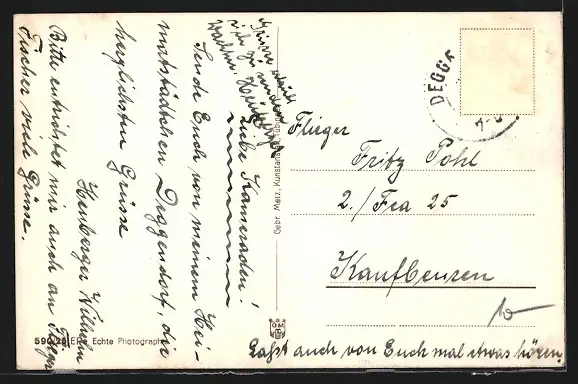 Liebe Kameraden!
Sende Euch von meinem Hei-
matstädtchen Deggendorf, die
herzlichsten Grüsse
Hemberger Wilhelm
Bitte entrichtet mir auch an Flieger
Fischer viele Grüsse.
DEGGE
Flieger
Fritz Pohl
2./Fea 25
Kaufbeuren
Lasst auch von Euch mal etwas hören.
Gebr. Metz, Kunstanstalt, Tübingen
GMT
590/25 Echte Photographie